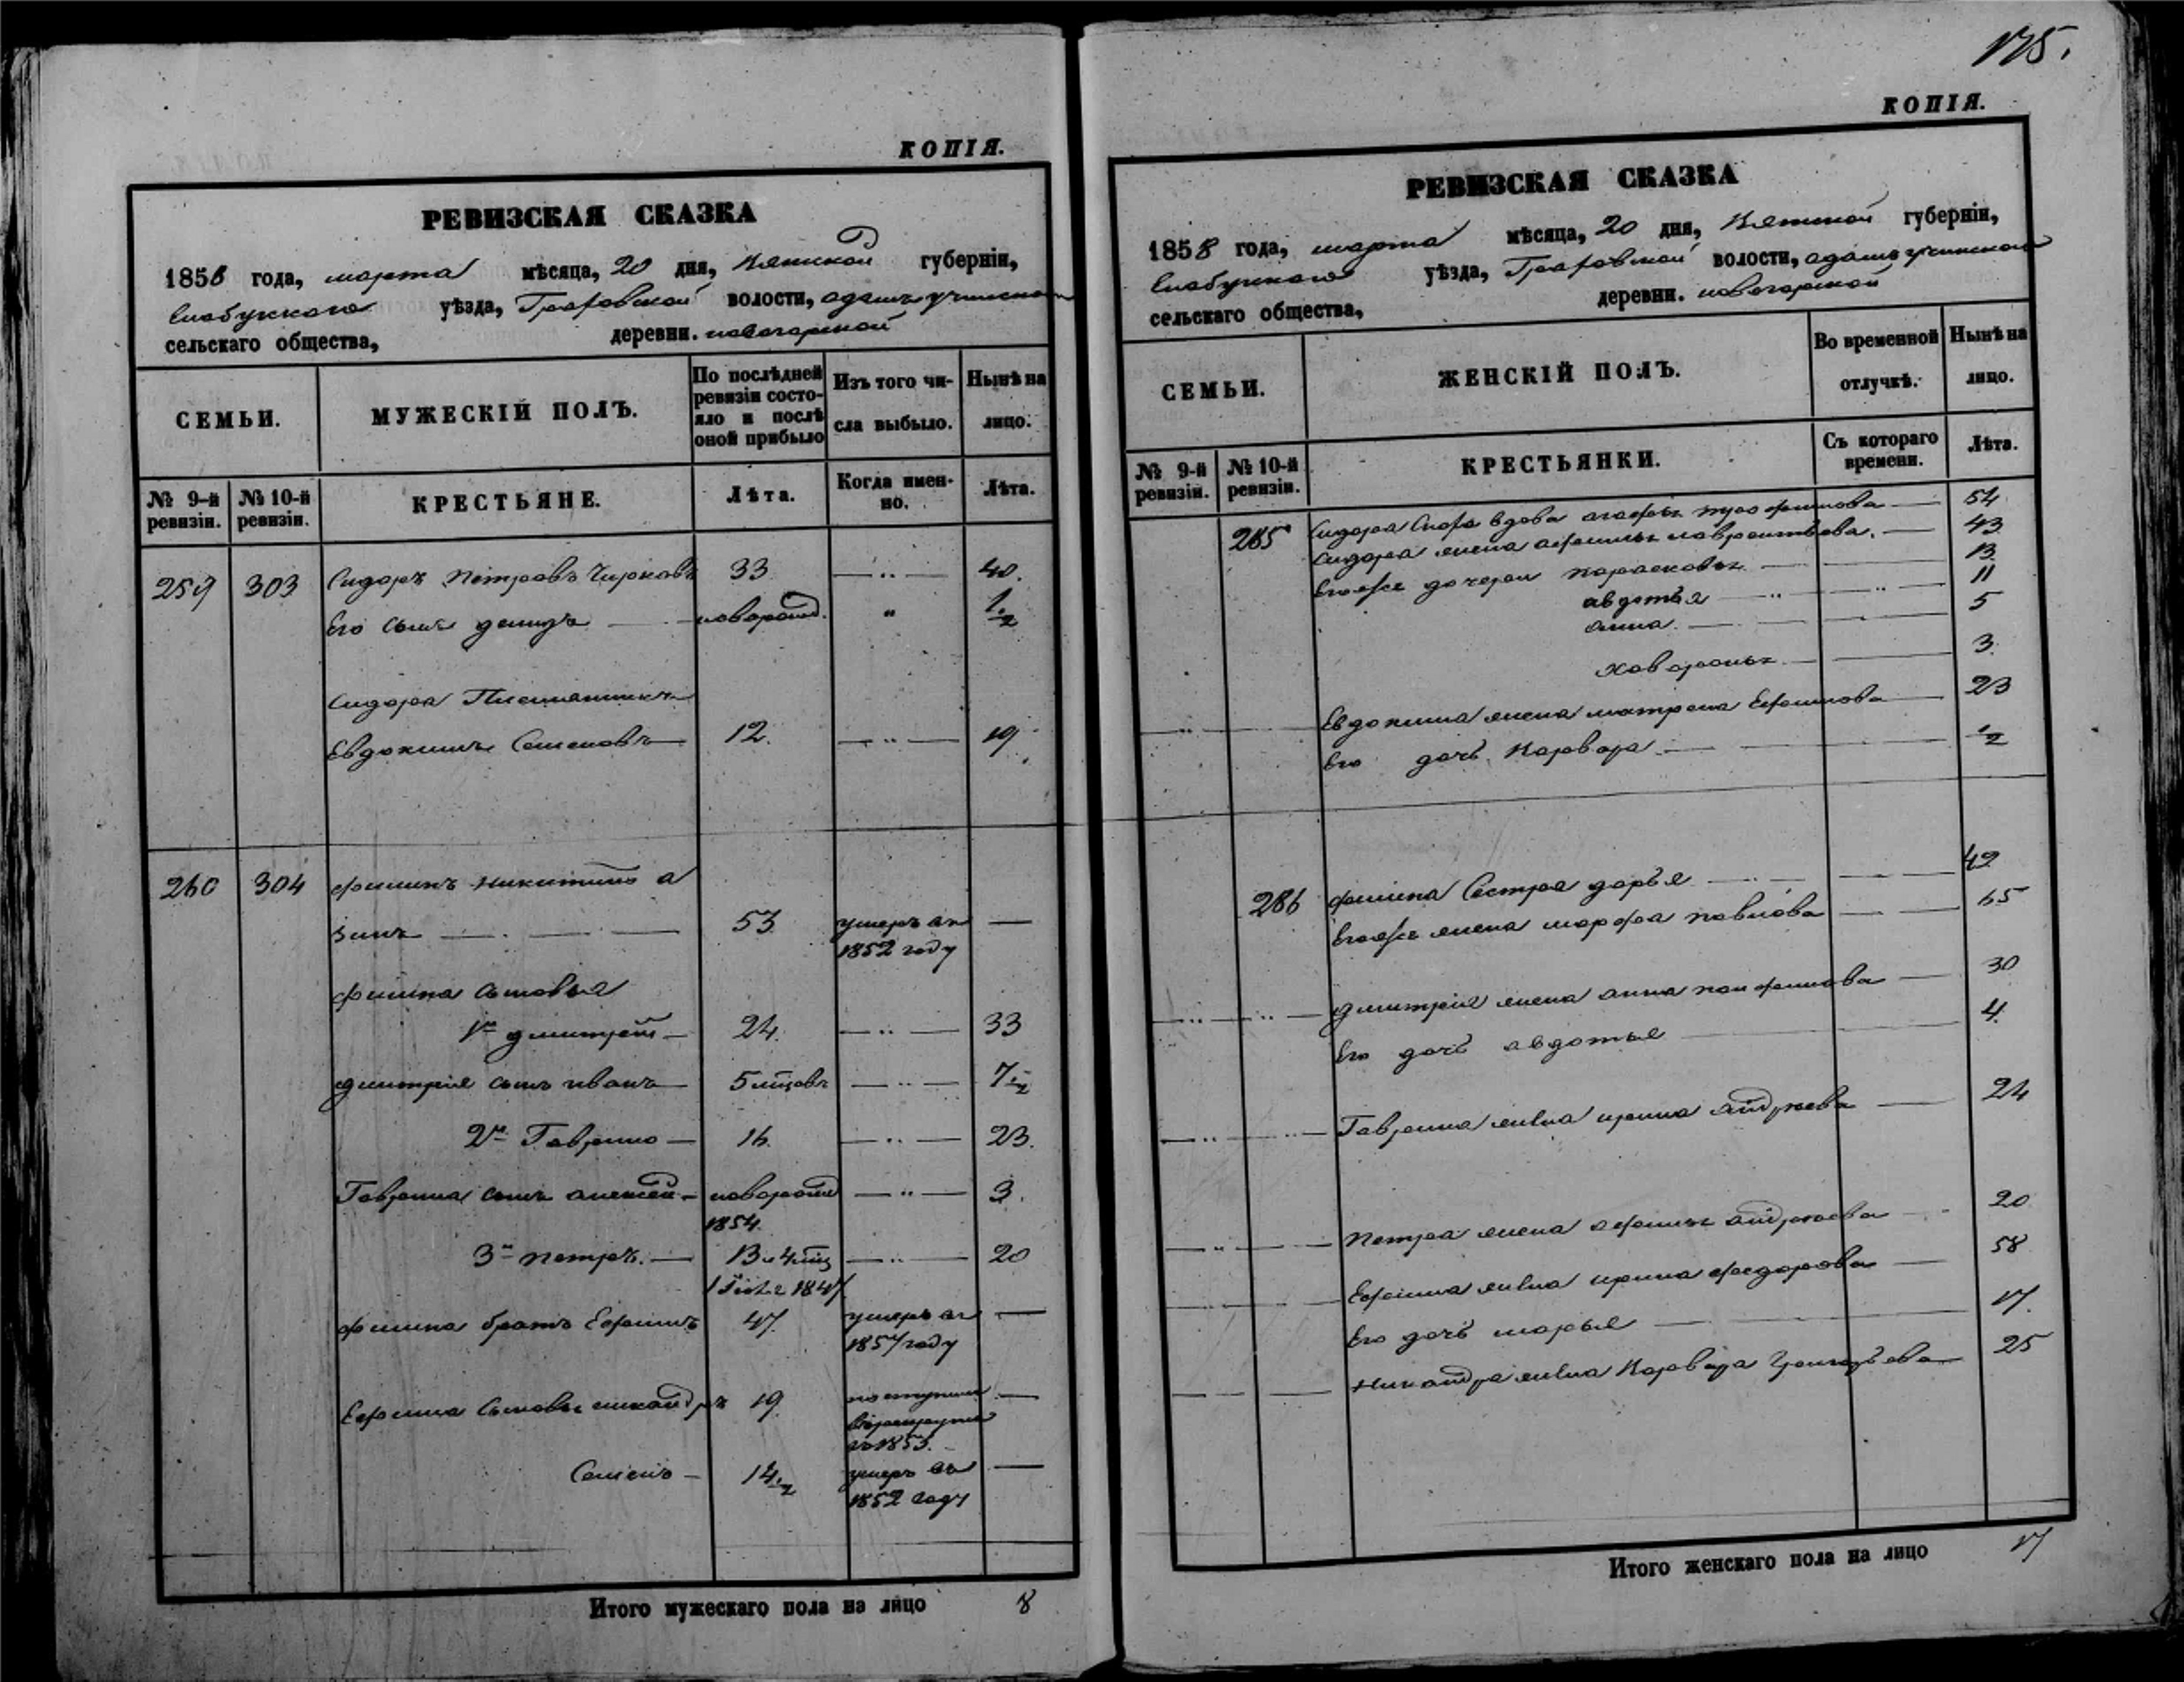 175.
КОПІЯ.
РЕВИЗСКАЯ СКАЗКА
1858 года, марта мѣсяца, 20 дня, Вятской губерніи,
Елабужскаго уѣзда, Граховской волости,
сельскаго общества, деревни. новогорской
СЕМЬИ. МУЖЕСКІЙ ПОЛЪ. По послѣдней ревизіи состояло и послѣ оной прибыло Изъ того числа выбыло. Нынѣ на лицо.
№ 9-й ревизіи. № 10-й ревизіи. КРЕСТЬЯНЕ. Лѣта. Когда именно. Лѣта.
259 303 Сидоръ Петровъ Чирковъ 33 — " — 40.
Его сынъ демидъ — новорожд. " 1/2
Сидора Племянникъ
Евдокимъ Семеновъ 12. — " — 19
260 304 филипъ никитинъ
53 умеръ въ —
1852 году
филипа сыновья
1й дмитрей — 24. — " — 33
дмитрія сынъ иванъ — 5 мцовъ — " — 7 1/2
2й Гаврило — 16. — " — 23.
Гаврила сынъ алексей — новорожд — " — 3.
1854.
3й петръ. — 13 и 4 мц — " — 20
филипа братъ Ефимъ 47. умеръ въ —
1857 году
Ефима сыновья никандръ 19. поступил —
врекруты
въ 1853.
Семенъ — 14 1/2 умеръ въ —
1852 году
Итого мужескаго пола на лицо 8
КОПІЯ.
РЕВИЗСКАЯ СКАЗКА
1858 года, марта мѣсяца, 20 дня, Вятской губерніи,
Елабужскаго уѣзда, Граховской волости,
сельскаго общества, деревни. новогорской
СЕМЬИ. ЖЕНСКІЙ ПОЛЪ. Во временной отлучкѣ. Нынѣ на лицо.
№ 9-й ревизіи. № 10-й ревизіи. КРЕСТЬЯНКИ. Съ котораго времени. Лѣта.
285 Сидора вдова агафья трофимова — 54
Сидора жена афимья лаврентьева. — 43
Егоже дочери парасковья — 13
авдотья — 11
анна. — 5
хавронья — 3.
Евдокима жена матрена Ефимова — 23
Его дочь Варвара — 1/2
286 филипа Сестра дарья — 49
Егоже жена марфа павлова — 65
дмитрія жена анна панфилова — 30
Его дочь авдотья 4.
Гаврила жена ирина андреева — 24
Петра жена афимья андреева 20
Ефима жена ирина федорова — 58
Его дочь марья — 17.
никандра жена Варвара григорьева — 25
Итого женскаго пола на лицо 17